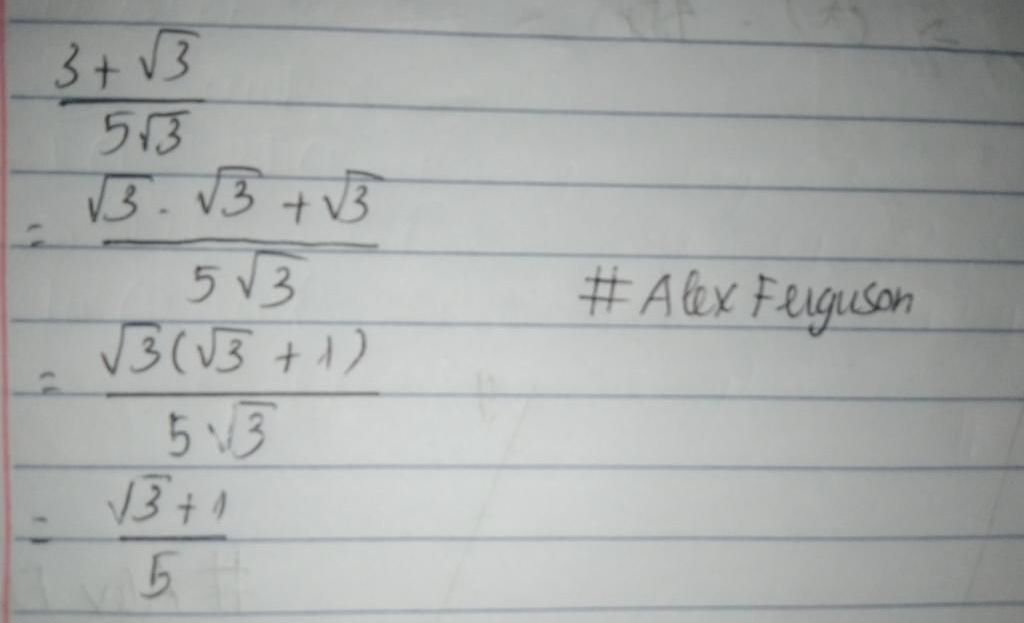 3 + √3
5√3
= √3 . √3 + √3
5 √3
# Alex Ferguson
= √3 (√3 + 1)
5 √3
= √3 + 1
5